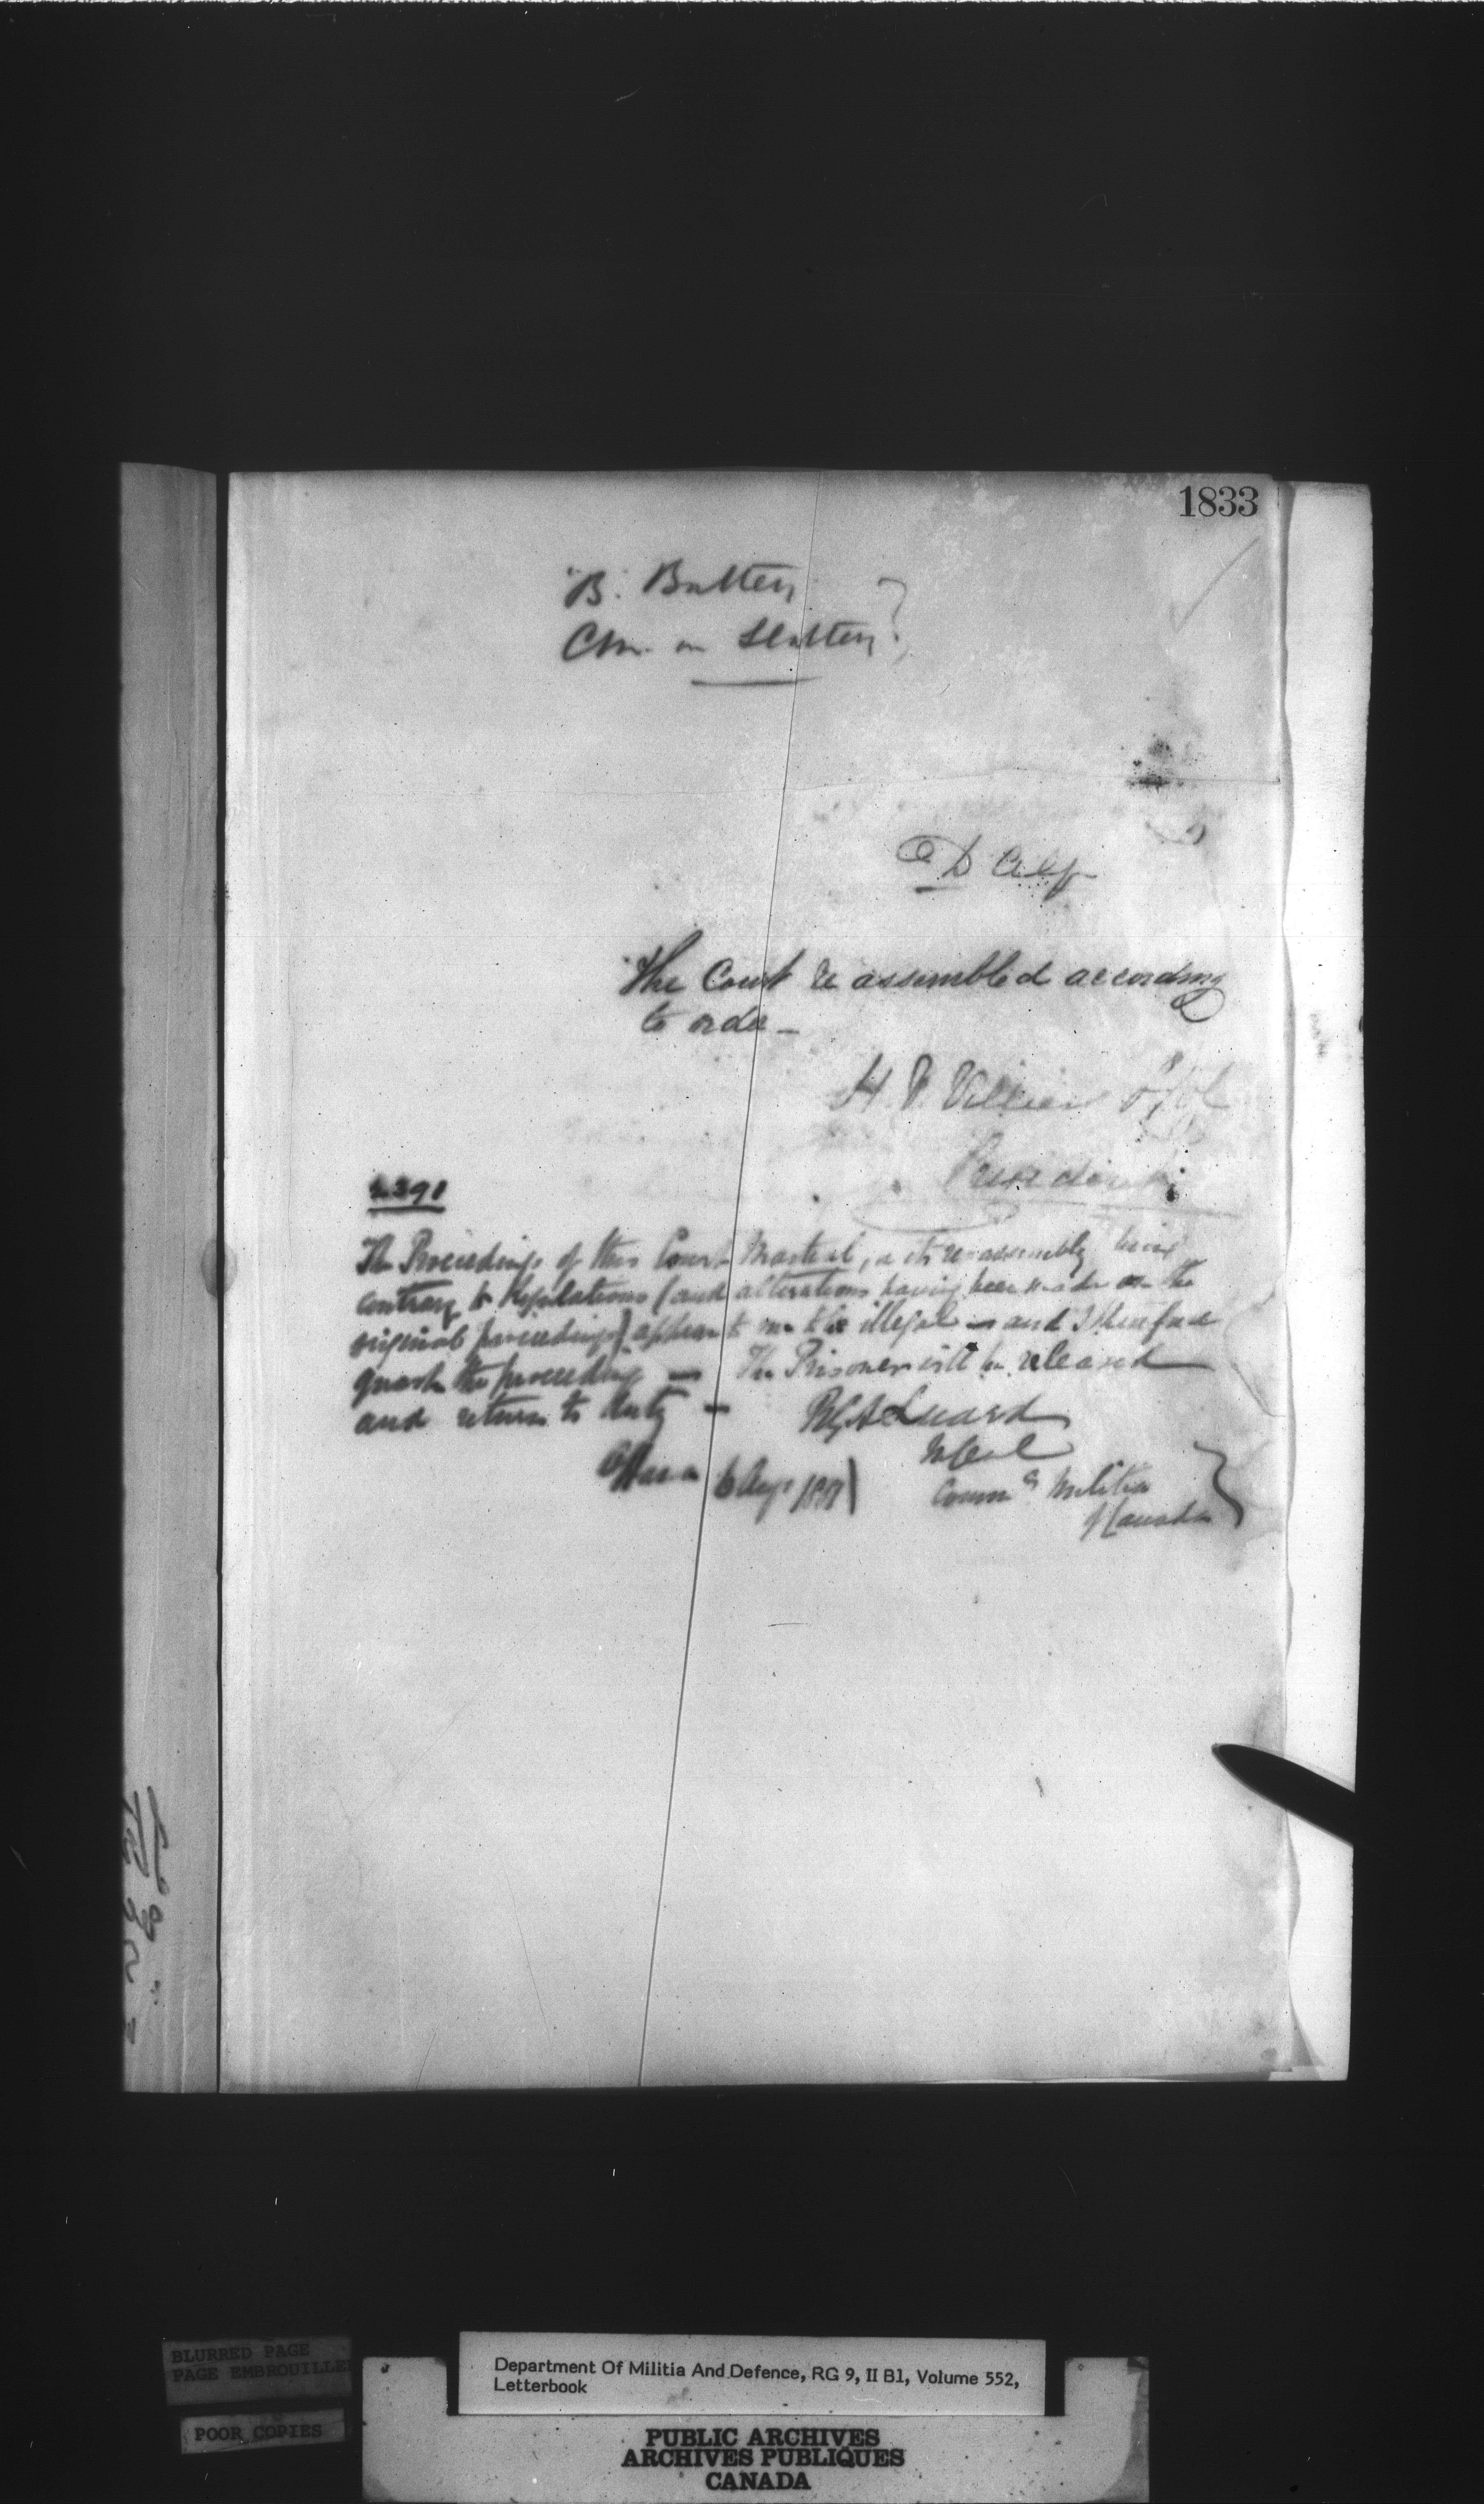 1833
"B" Battery
Cm. on Slattery
The Court re assembled according
to order _
President
The Proceedings of this Court Martial, in its re-assembly being
contrary to Regulations (and alterations having been made on the
original proceedings) appear to me to be illegal — and I therefore
quash the proceedings — The Prisoner will be released
and return to duty —
RGA Luard
M Genl
Commg Militia
of Canada
Ottawa 6 Augt 1881
BLURRED PAGE
PAGE EMBROUILLE
POOR COPIES
Department Of Militia And Defence, RG 9, II B1, Volume 552,
Letterbook
PUBLIC ARCHIVES
ARCHIVES PUBLIQUES
CANADA